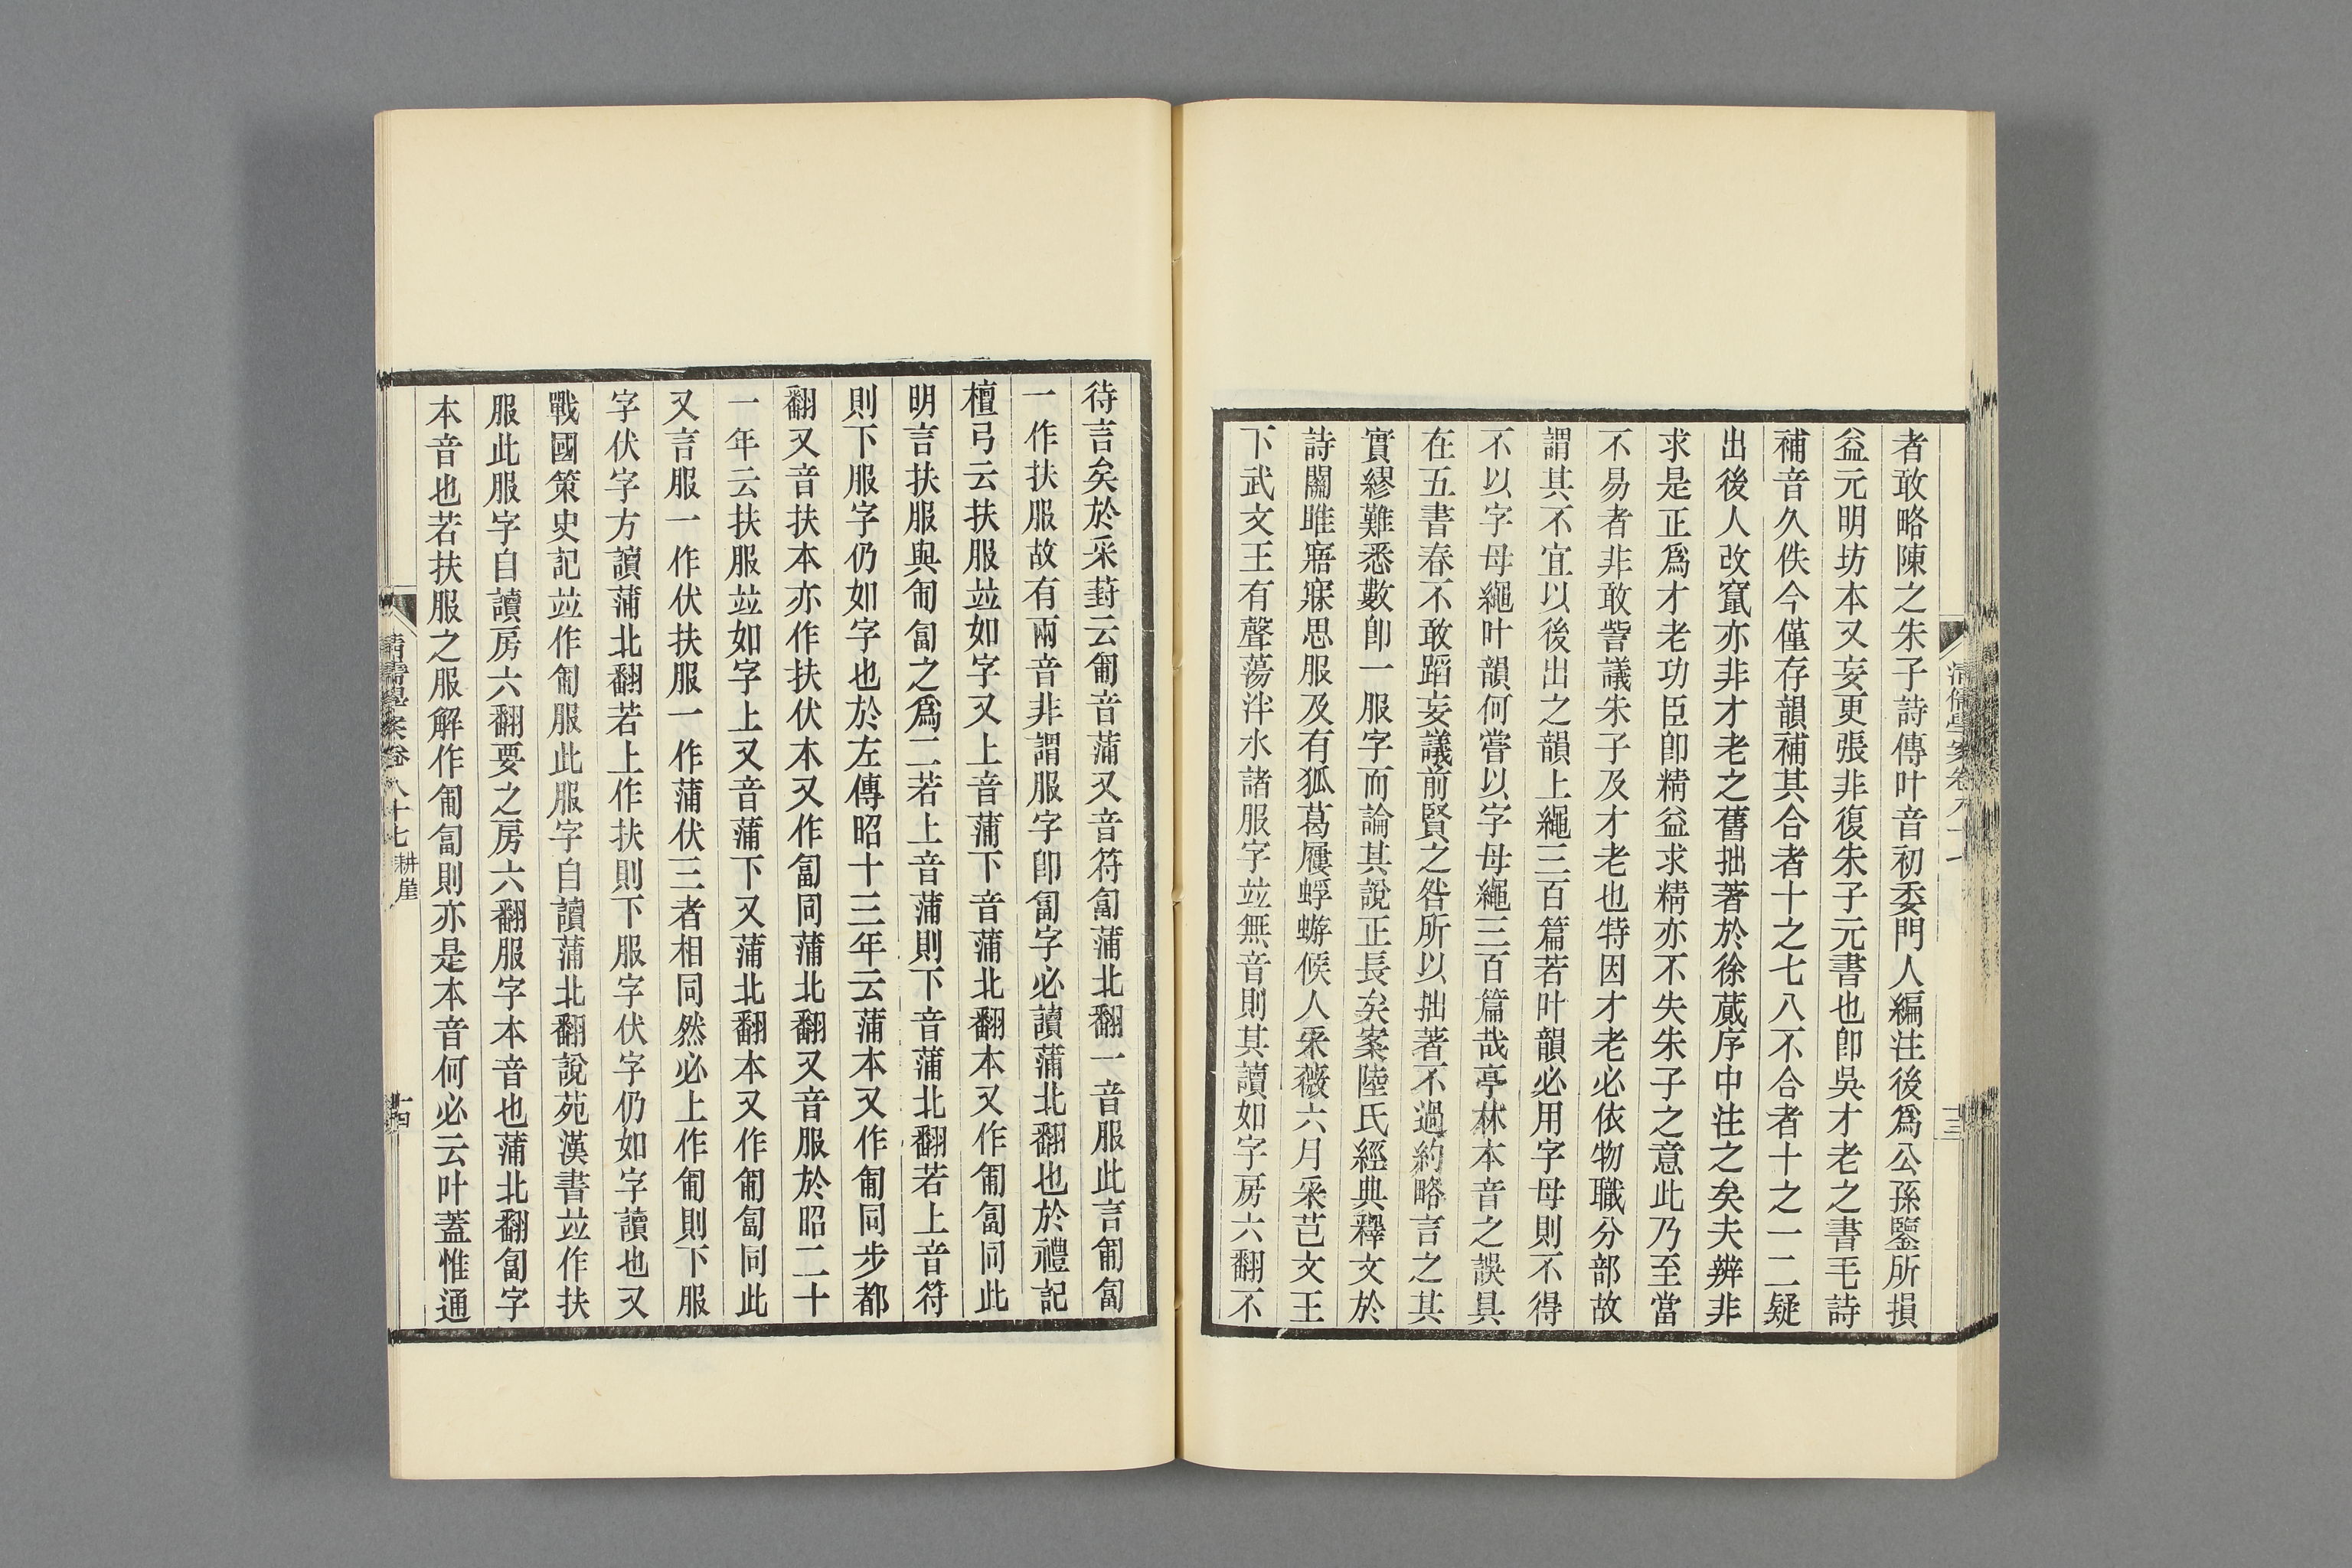 者敢略陳之朱子詩傳叶音初委門人編注後爲公孫鑒所損
益元明坊本又妄更張非復朱子元書也卽吳才老之書毛詩
補音久佚今僅存韻補其合者十之七八不合者十之一二疑
出後人改竄亦非才老之舊拙著於徐蕆序中注之矣夫辨非
求是正爲才老功臣卽精益求精亦不失朱子之意此乃至當
不易者非敢訾議朱子及才老也特因才老必依物職分部故
謂其不宜以後出之韻上繩三百篇若叶韻必用字母則不得
不以字母繩叶韻何嘗以字母繩三百篇哉亭林本音之誤具
在五書春不敢蹈妄議前賢之咎所以拙著不過約略言之其
實繆難悉數卽一服字而論其說正長矣案陸氏經典釋文於
詩關雎寤寐思服及有狐葛屨蜉蝣候人采薇六月采芑文王
下武文王有聲蕩泮水諸服字竝無音則其讀如字房六翻不
清儒學案卷八十七
十三
待言矣於采葑云匍音蒲又音符匐蒲北翻一音服此言匍匐
一作扶服故有兩音非謂服字卽匐字必讀蒲北翻也於禮記
檀弓云扶服竝如字又上音蒲下音蒲北翻本又作匍匐同此
明言扶服與匍匐之爲二若上音蒲則下音蒲北翻若上音符
則下服字仍如字也於左傳昭十三年云蒲本又作匍同步都
翻又音扶本亦作扶伏木又作匐同蒲北翻又音服於昭二十
一年云扶服竝如字上又音蒲下又蒲北翻本又作匍匐同此
又言服一作伏扶服一作蒲伏三者相同然必上作匍則下服
字伏字方讀蒲北翻若上作扶則下服字伏字仍如字讀也又
戰國策史記竝作匍服此服字自讀蒲北翻說苑漢書竝作扶
服此服字自讀房六翻要之房六翻服字本音也蒲北翻匐字
本音也若扶服之服解作匍匐則亦是本音何必云叶蓋惟通
清儒學案卷八十七 耕崖
十四